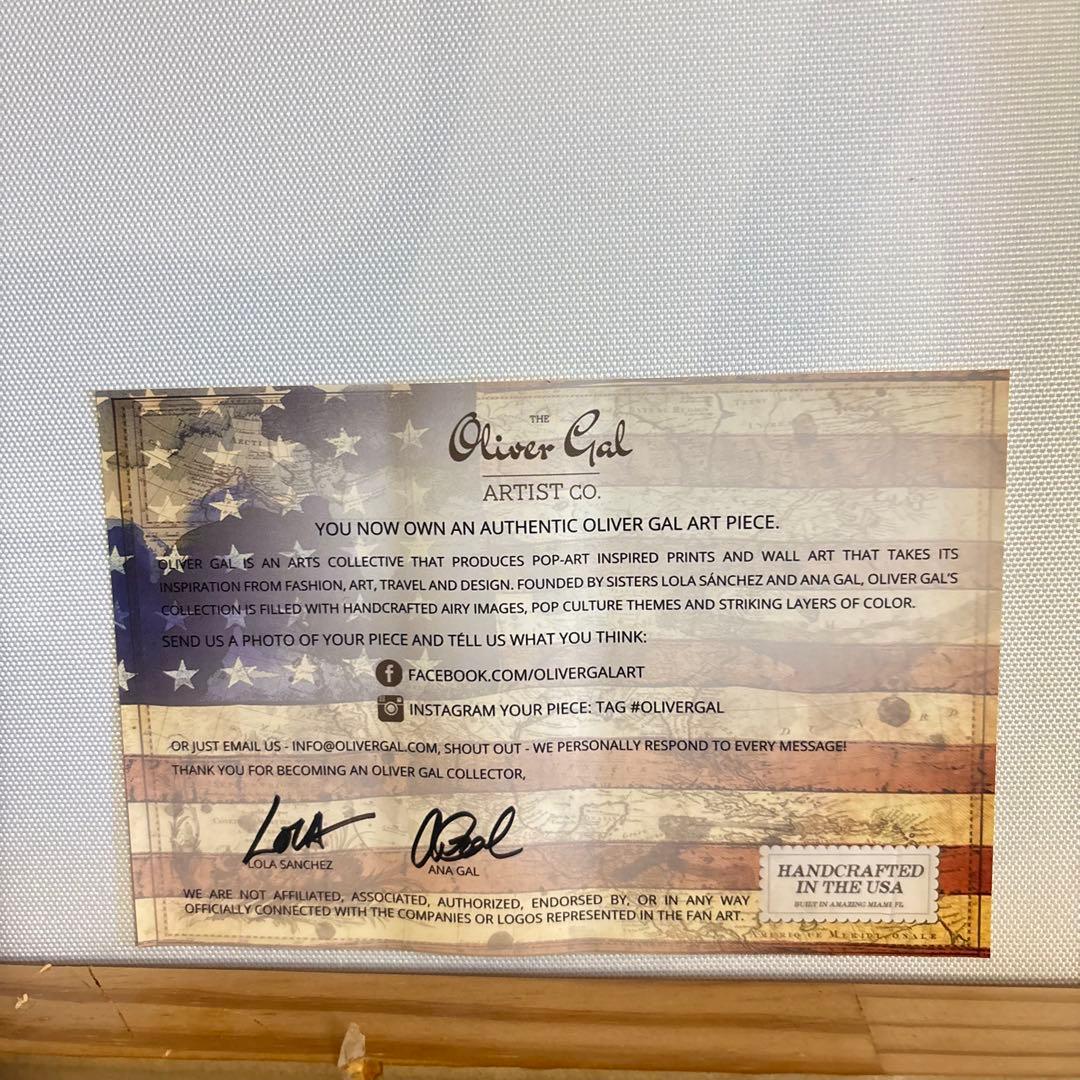 ARCTI
THE
Oliver Gal
ARTIST CO.
YOU NOW OWN AN AUTHENTIC OLIVER GAL ART PIECE.
OLIVER GAL IS AN ARTS COLLECTIVE THAT PRODUCES POP-ART INSPIRED PRINTS AND WALL ART THAT TAKES ITS
INSPIRATION FROM FASHION, ART, TRAVEL AND DESIGN. FOUNDED BY SISTERS LOLA SÁNCHEZ AND ANA GAL, OLIVER GAL'S
COLLECTION IS FILLED WITH HANDCRAFTED AIRY IMAGES, POP CULTURE THEMES AND STRIKING LAYERS OF COLOR.
SEND US A PHOTO OF YOUR PIECE AND TELL US WHAT YOU THINK:
FACEBOOK.COM/OLIVERGALART
INSTAGRAM YOUR PIECE: TAG #OLIVERGAL
OR JUST EMAIL US - INFO@OLIVERGAL.COM, SHOUT OUT - WE PERSONALLY RESPOND TO EVERY MESSAGE!
THANK YOU FOR BECOMING AN OLIVER GAL COLLECTOR,
LOLA
LOLA SANCHEZ
ANA GAL
WE ARE NOT AFFILIATED, ASSOCIATED, AUTHORIZED, ENDORSED BY, OR IN ANY WAY
OFFICIALLY CONNECTED WITH THE COMPANIES OR LOGOS REPRESENTED IN THE FAN ART.
HANDCRAFTED
IN THE USA
BUILT IN AMAZING MIAMI FL
AMERIQUE MERIDIONALE